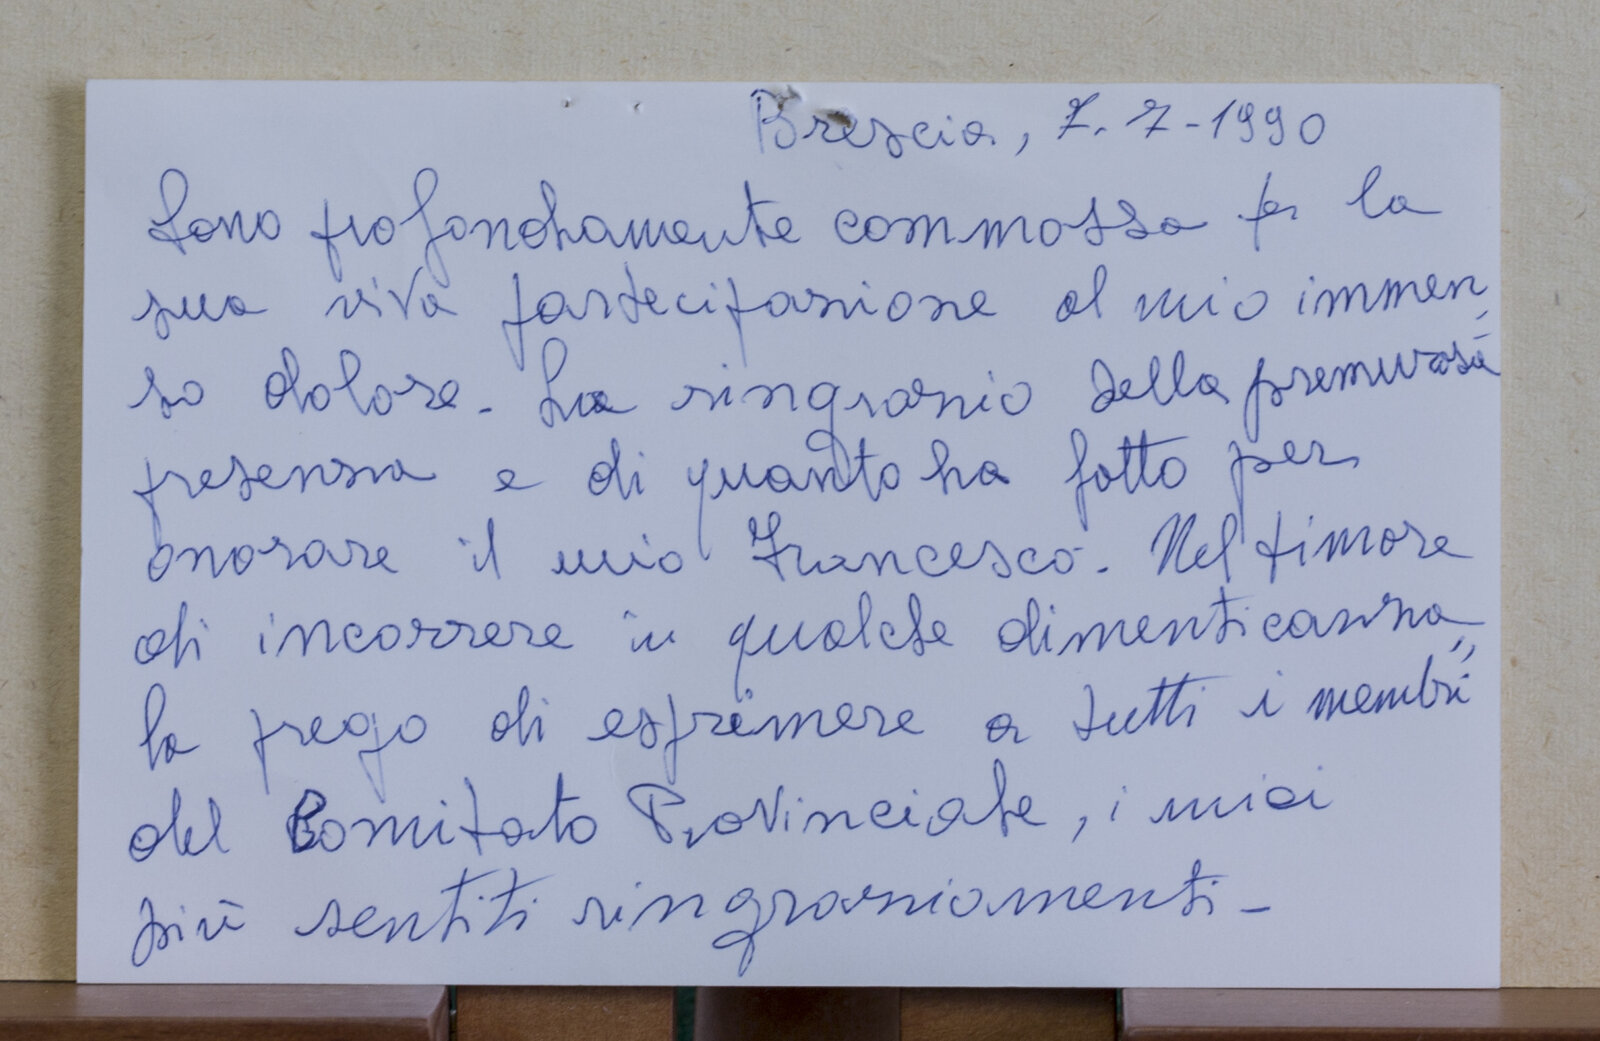 Brescia, 7. 7-1990
Sono profondamente commossa per la
sua viva partecipazione al mio immen
so dolore. La ringrazio della premurosa
presenza e di quanto ha fatto per
onorare il mio Francesco. Nel timore
di incorrere in qualche dimenticanza,
la prego di esprimere a tutti i membri
del Comitato Provinciale, i miei
più sentiti ringraziamenti-